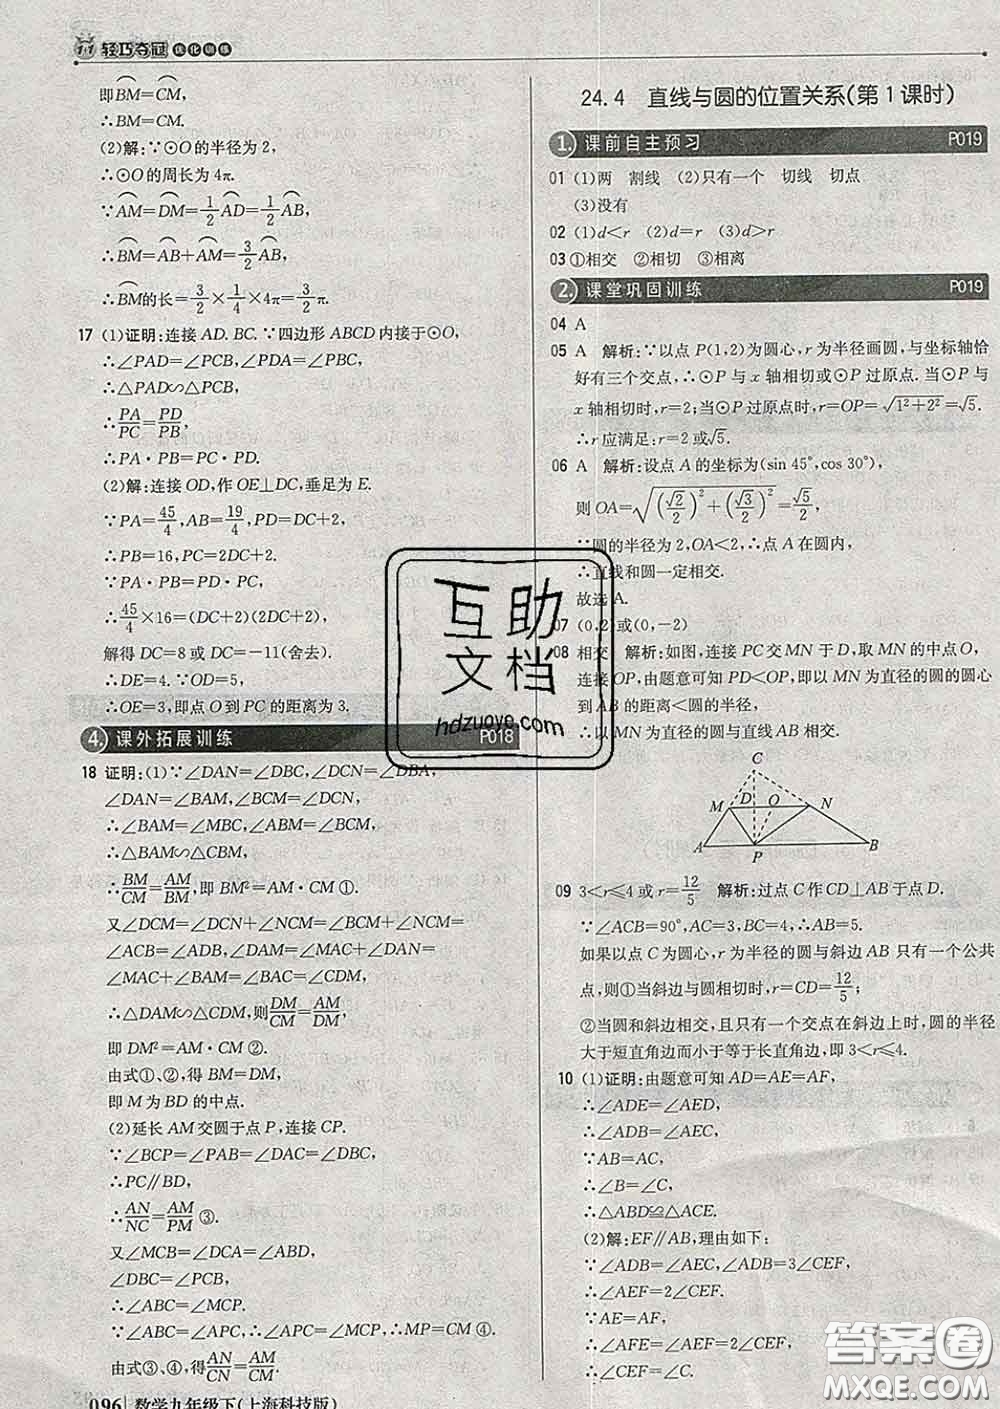 1+1 轻巧夺冠 优化训练
即BM=CM,
∴BM=CM.
(2)解:∵⊙O的半径为2,
∴⊙O的周长为4π.
∵AM=DM=1/2 AD=1/2 AB,
∴BM=AB+AM=3/2 AB,
∴BM的长=3/2×1/4×4π=3/2π.
17 (1)证明:连接 AD. BC. ∵四边形 ABCD 内接于⊙O,
∴∠PAD=∠PCB,∠PDA=∠PBC,
∴△PAD∽△PCB,
∴PA/PC=PD/PB,
∴PA·PB=PC·PD.
(2)解:连接 OD,作 OE⊥DC,垂足为 E.
∵PA=45/4,AB=19/4,PD=DC+2,
∴PB=16,PC=2DC+2.
∵PA·PB=PD·PC,
∴45/4×16=(DC+2)(2DC+2),
解得 DC=8 或 DC=-11(舍去).
∴DE=4. ∵OD=5,
∴OE=3,即点 O 到 PC 的距离为 3.
4. 课外拓展训练 P018
18 证明:(1)∵∠DAN=∠DBC,∠DCN=∠DBA,
∠DAN=∠BAM,∠BCM=∠DCN,
∴∠BAM=∠MBC,∠ABM=∠BCM,
∴△BAM∽△CBM,
∴BM/CM=AM/BM,即 BM²=AM·CM ①.
又∠DCM=∠DCN+∠NCM=∠BCM+∠NCM=
∠ACB=∠ADB,∠DAM=∠MAC+∠DAN=
∠MAC+∠BAM=∠BAC=∠CDM,
∴△DAM∽△CDM,则DM/CM=AM/DM,
即 DM²=AM·CM ②.
由式①、②,得 BM=DM,
即 M 为 BD 的中点.
(2)延长 AM 交圆于点 P,连接 CP.
∵∠BCP=∠PAB=∠DAC=∠DBC,
∴PC∥BD,
∴AN/NC=AM/PM ③.
又∠MCB=∠DCA=∠ABD,
∠DBC=∠PCB,
∴∠ABC=∠MCP.
∵∠ABC=∠APC,∴∠MCP=∠APC,∴MP=CM ④.
由式③、④,得AN/CN=AM/CM.
096 数学九年级下(上海科技版)
24.4 直线与圆的位置关系(第 1 课时)
1. 课前自主预习 P019
01 (1)两 割线 (2)只有一个 切线 切点
(3)没有
02 (1)d<r (2)d=r (3)d>r
03 ①相交 ②相切 ③相离
2. 课堂巩固训练 P019
04 A
05 A 解析:∵以点 P(1,2)为圆心,r 为半径画圆,与坐标轴恰
好有三个交点,∴⊙P 与 x 轴相切或⊙P 过原点. 当⊙P 与
x 轴相切时,r=2;当⊙P 过原点时,r=OP=√(1²+2²)=√5.
∴r 应满足:r=2 或√5.
06 A 解析:设点 A 的坐标为(sin 45°,cos 30°),
则 OA=√((√2/2)²+(√3/2)²)=√5/2,
∵圆的半径为 2,OA<2,∴点 A 在圆内,
∴直线和圆一定相交.
故选 A.
07 (0,2)或(0,-2)
08 相交 解析:如图,连接 PC 交 MN 于 D,取 MN 的中点 O,
连接 OP,由题意可知 PD<OP,即以 MN 为直径的圆的圆心
到 AB 的距离<圆的半径,
∴以 MN 为直径的圆与直线 AB 相交.
C
M D O N
A P B
09 3<r≤4 或 r=12/5 解析:过点 C 作 CD⊥AB 于点 D.
∵∠ACB=90°,AC=3,BC=4,∴AB=5.
如果以点 C 为圆心,r 为半径的圆与斜边 AB 只有一个公共
点,则①当斜边与圆相切时,r=CD=12/5;
②当圆和斜边相交,且只有一个交点在斜边上时,圆的半径
大于短直角边而小于等于长直角边,即 3<r≤4.
10 (1)证明:由题意可知 AD=AE=AF,
∴∠ADE=∠AED.
∵AB=AC,
∴∠B=∠C,
∴△ABD≌△ACE.
(2)解:EF∥AB,理由如下:
∵∠ADE=∠AED,∠ADB=3∠CEF,
∴∠AEF=2∠CEF.
∵AE=AF,
∴∠AFE=∠AEF=2∠CEF,
∴∠C=∠CEF.
互助
文档
hdzuoye.com
答案圈
MXQE.COM